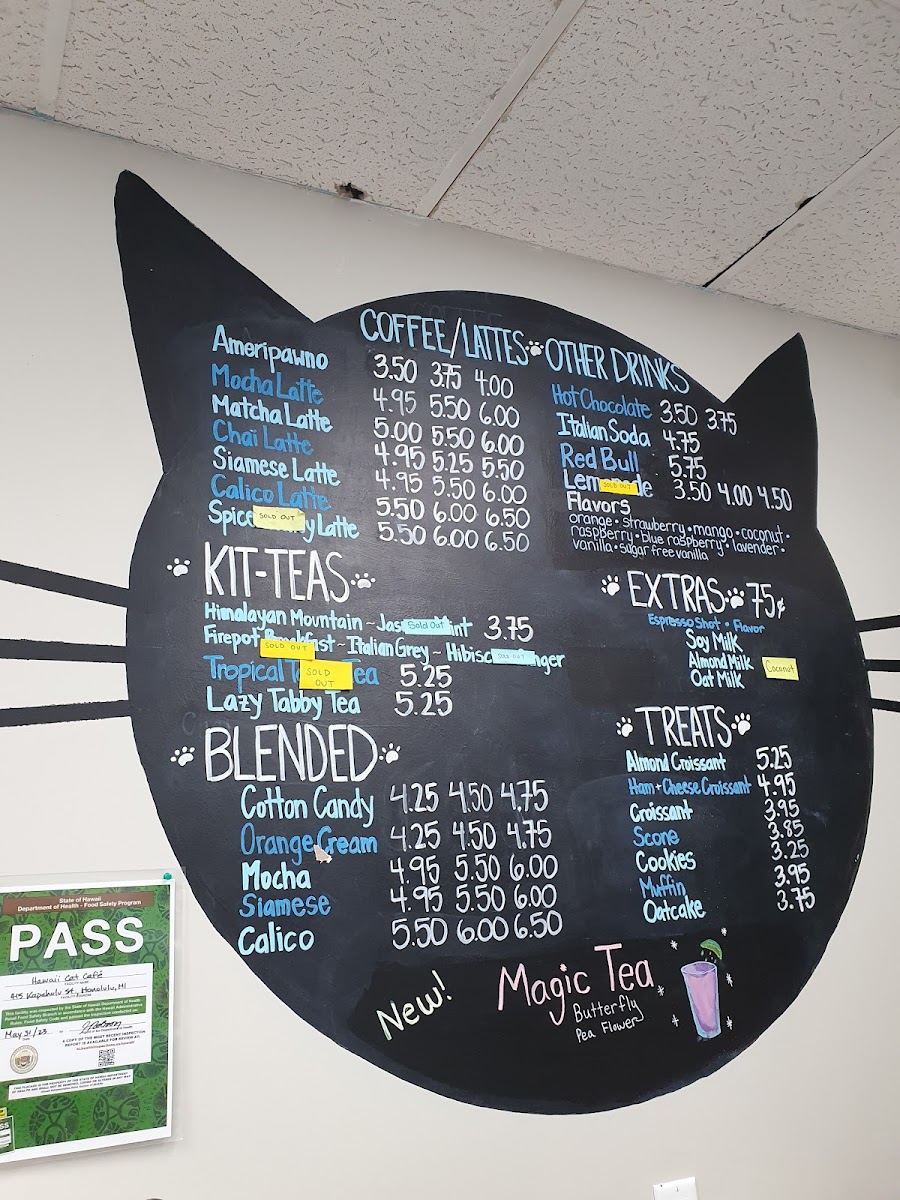 COFFEE/LATTES
Ameripawno 3.50 3.75 4.00
Mocha Latte 4.95 5.50 6.00
Matcha Latte 5.00 5.50 6.00
Chai Latte 4.95 5.25 5.50
Siamese Latte 4.95 5.50 6.00
Calico Latte 5.50 6.00 6.50
Spice SOLD OUT y Latte 5.50 6.00 6.50
OTHER DRINKS
Hot Chocolate 3.50 3.75
Italian Soda 4.75
Red Bull 5.75
Lem SOLD OUT de 3.50 4.00 4.50
Flavors
orange • strawberry • mango • coconut •
raspberry • blue raspberry • lavender •
vanilla • sugar free vanilla
KIT-TEAS
Himalayan Mountain ~ Jas Sold Out int 3.75
Firepot Breakfast ~ Italian Grey ~ Hibisc SOLD OUT nger
SOLD OUT
Tropical T SOLD OUT Tea 5.25
Lazy Tabby Tea 5.25
EXTRAS 75¢
Espresso Shot • Flavor
Soy Milk
Almond Milk
Oat Milk
Coconut
BLENDED
Cotton Candy 4.25 4.50 4.75
Orange Cream 4.25 4.50 4.75
Mocha 4.95 5.50 6.00
Siamese 4.95 5.50 6.00
Calico 5.50 6.00 6.50
TREATS
Almond Croissant 5.25
Ham + Cheese Croissant 4.95
Croissant 3.95
Scone 3.85
Cookies 3.25
Muffin 3.95
Oatcake 3.75
New! Magic Tea
Butterfly
Pea Flower
State of Hawaii
Department of Health - Food Safety Program
PASS
Hawaii Cat Café
FACILITY NAME
415 Kapahulu St, Honolulu, HI
FACILITY ADDRESS
May 31/23
A COPY OF THE MOST RECENT INSPECTION
REPORT IS AVAILABLE FOR REVIEW AT: